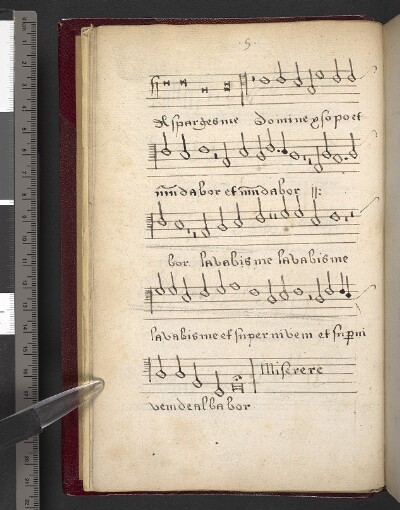 ·5·
Asparges me domine ysopo et
mundabor et mundabor ||:
bor lavabis me lavabis me
lavabis me et super nivem et sup ni
Miserere
vem dealbabor